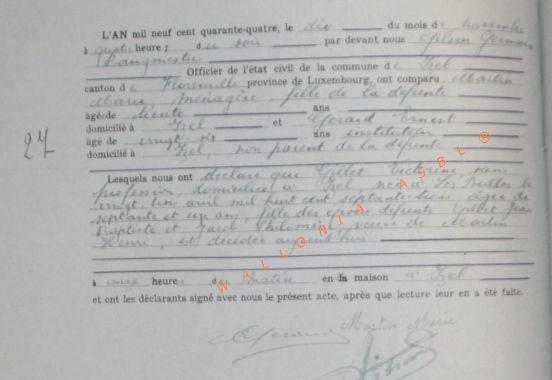 L'AN mil neuf cent quarante-quatre, le dix du mois de novembre
à quatre heure, du soir par devant nous Gilson Germain
Bourgmestre
Officier de l'état civil de la commune de Izel
canton de Florenville province de Luxembourg, ont comparu Martin
Marie, ménagère, fille de la défunte
âgé de trente ans
domicilié à Izel et Gérard Ernest
âgé de vingt six ans instituteur
domicilié à Izel, non parent de la défunte
27
Lesquels nous ont déclaré que Gillet Victorine, sans
profession, domiciliée à Izel, née à Les Bulles le
vingt, un avril mil huit cent septante trois, âgée de
septante et un ans, fille des époux défunts Gillet Jean
Baptiste et Jacob Philomène, veuve de Martin
Henri, est décédée aujourd'hui
à onze heure, du matin en sa maison à Izel
et ont les déclarants signé avec nous le présent acte, après que lecture leur en a été faite.
Martin Marie
WALLONIA ASBL ®